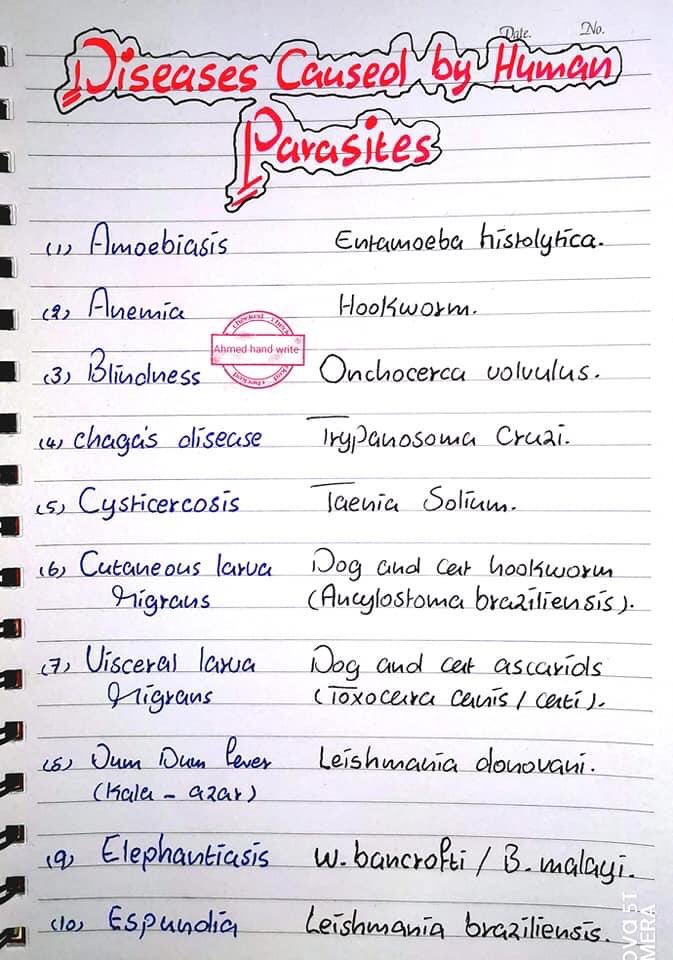 Date. No.
Diseases Caused by Human
Parasites
(1) Amoebiasis Entamoeba histolytica.
(2) Anemia Hookworm.
checked chec
Ahmed hand write
checked
(3) Blindness Onchocerca volvulus.
(4) chaga's disease Trypanosoma Cruzi.
(5) Cysticercosis Taenia Solium.
(6) Cutaneous larva Dog and cat hookworm
Migrans (Ancylostoma braziliensis).
(7) Visceral larva Dog and cat ascarids
Migrans (Toxocara canis / cati).
(8) Dum Dum fever Leishmania donovani.
(Kala - azar)
(9) Elephantiasis W. bancrofti / B. malayi.
(10) Espundia Leishmania braziliensis.
ova 5T
MERA